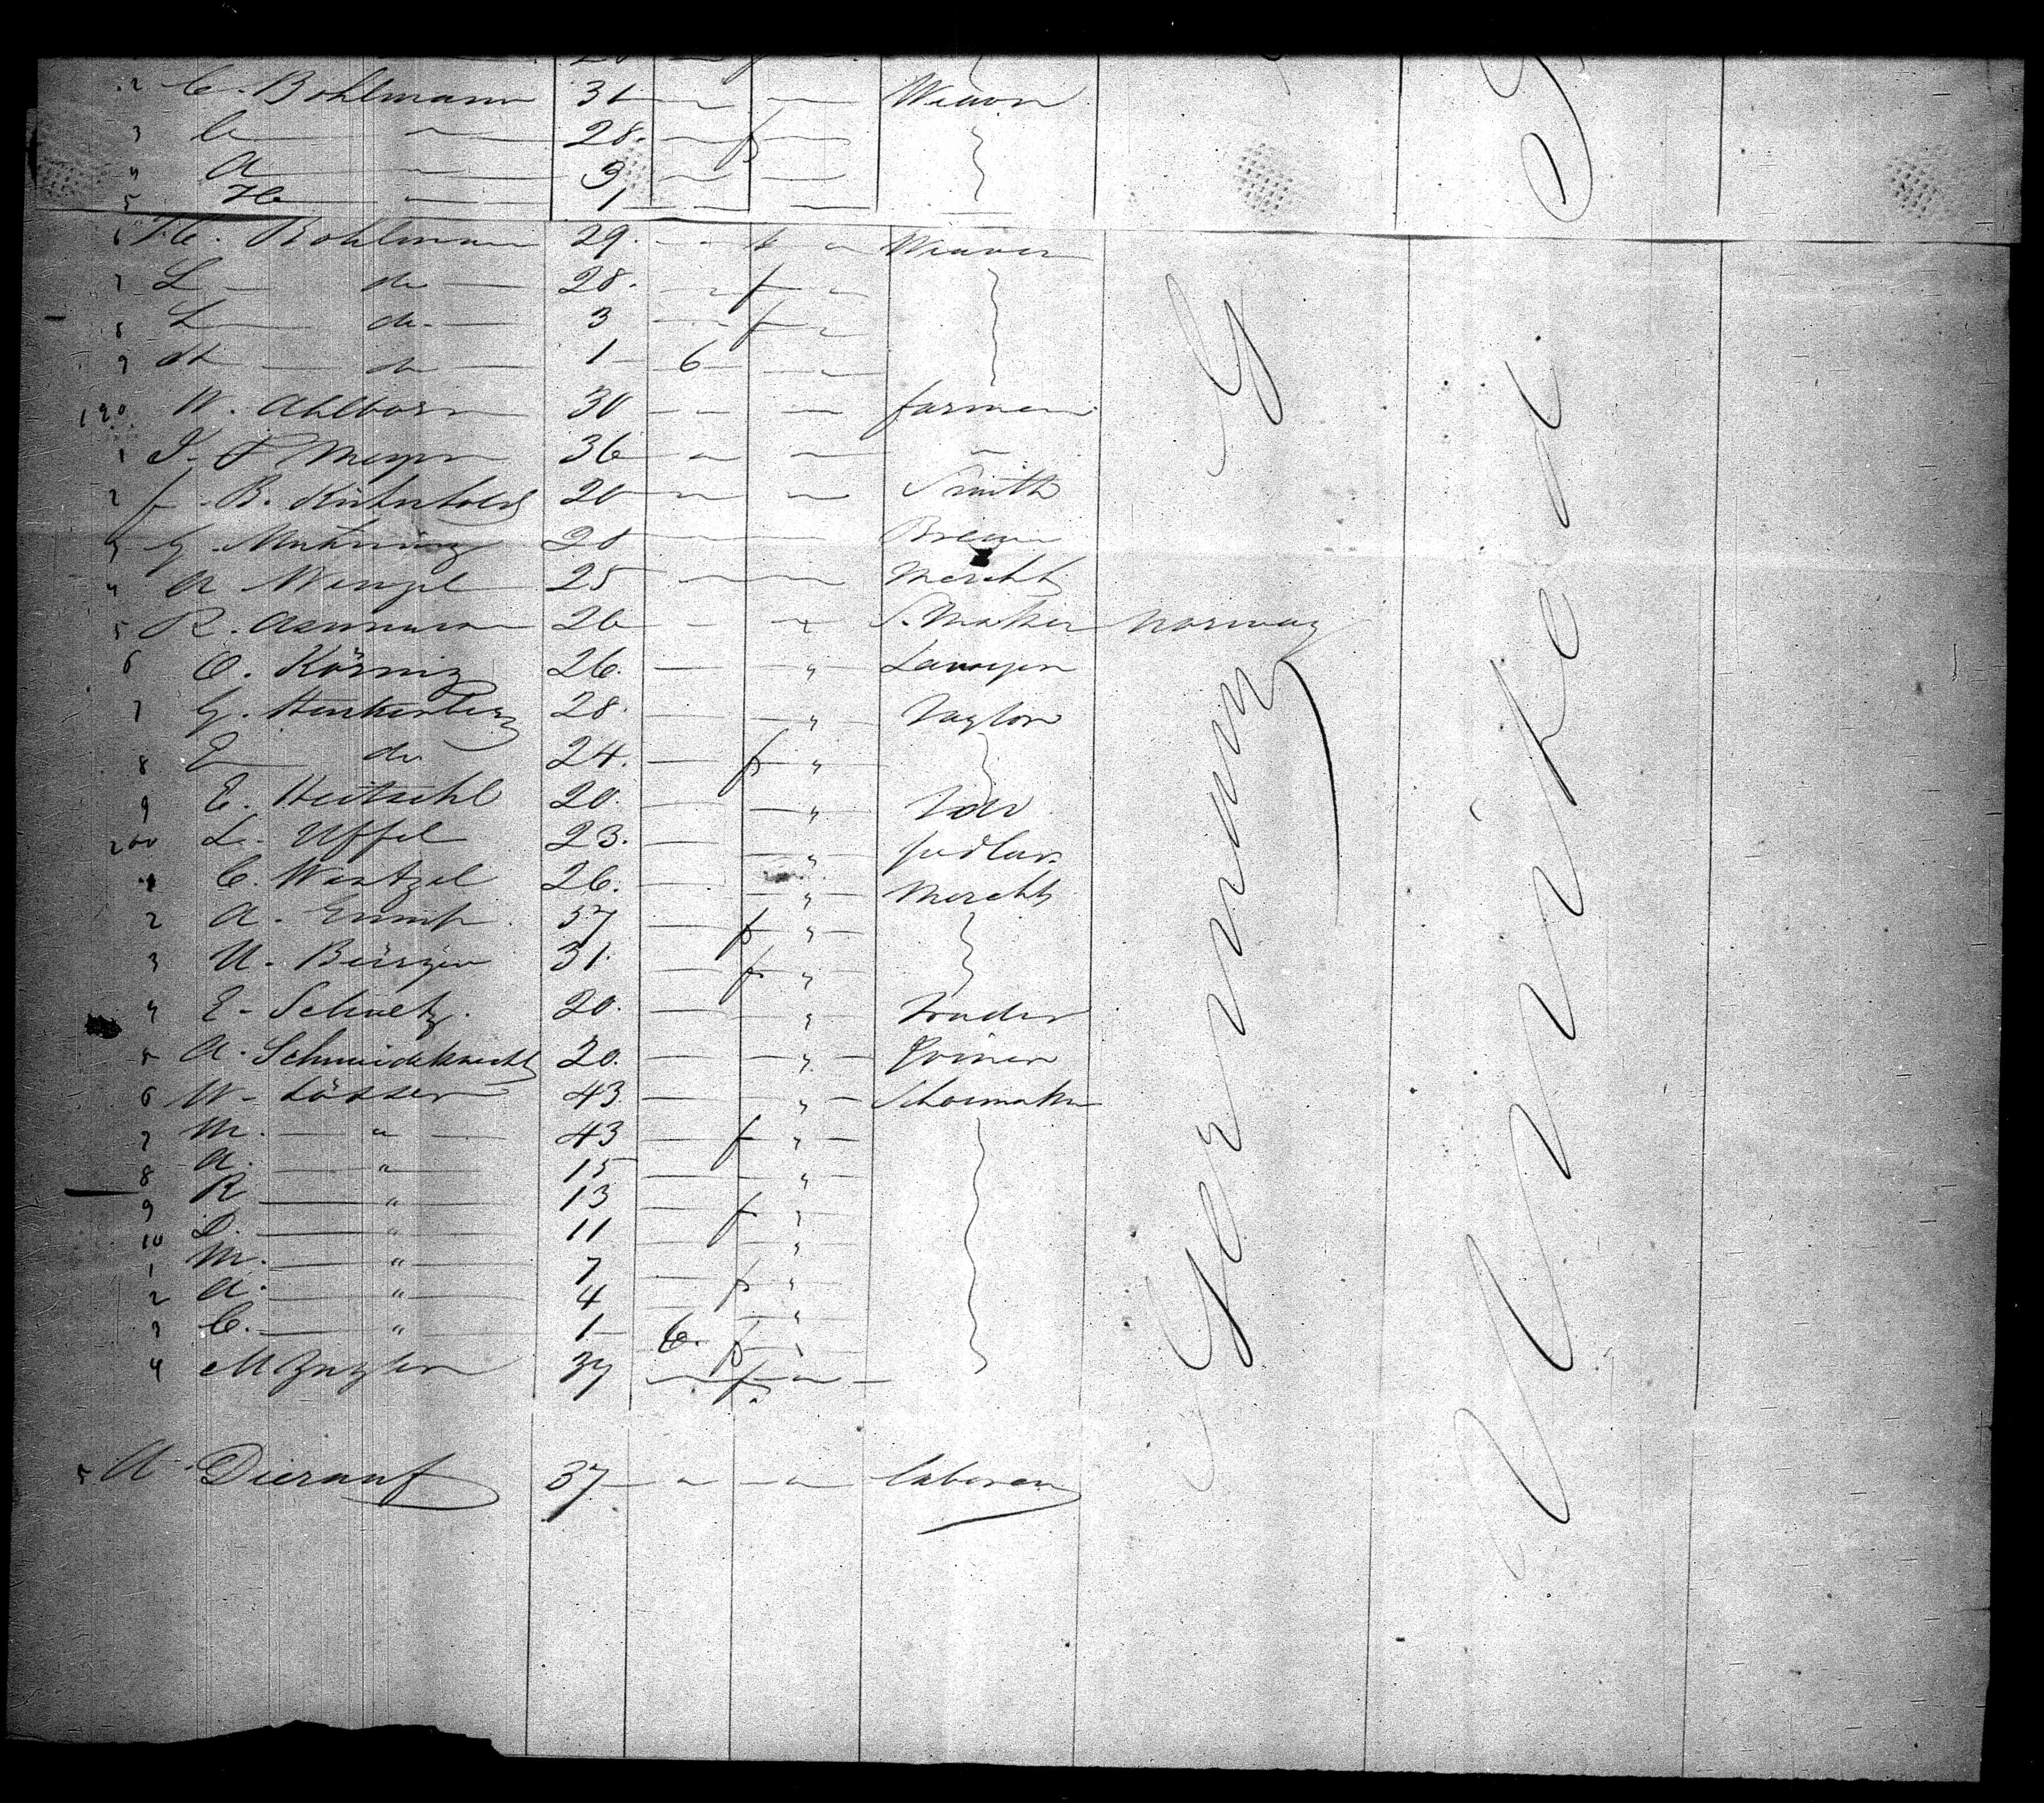 2 C. Bohlmann 31 — — Weavor
3 C — " — 28. — f —
4 A — " — 3 — —
5 He — " — 1 — —
6 H. C. Bohlmann 29. — — Weaver
7 L — do — 28. — f —
8 L — do. — 3 — f —
9 A — do — 1 — 6 —
190 W. Ahlborn 30 — — farmer
1 J. F Meyer 36 — — "
2 f. B. 20 — — Smith
3 G. 20 — — Brewer
4 A Wenzel 25 — — Mercht
5 R. Asmuson 26 — " S. Maker Norway
6 O. Körnig 26. — " Lawyer
7 G. Henkenberg 28. — " Taylor
8 E — do 24. — f "
9 E. Heitschl 20. — " Do
200 L. Uffel 23. — " pedlar.
1 C. Wentzel 26. — " Mercht
2 A. 57 — f "
3 U. Bürgin 31. — f "
4 E. Schuetz. 20. — " Trader
5 A. Schmidtknecht 20. — " Joiner
6 W. Lösser 43 — " — Schoemaker
7 M. — " — 43 — f " —
8 A. — " 15 — "
9 R — " 13 — f "
10 L. — " 11 — "
1 M. — " 7 — f "
2 A. — " 4 — "
3 C. — " 1 — 6. f "
4 M 37 — f. —
5 A. Dierauf 37 — — laborer
Germany
United